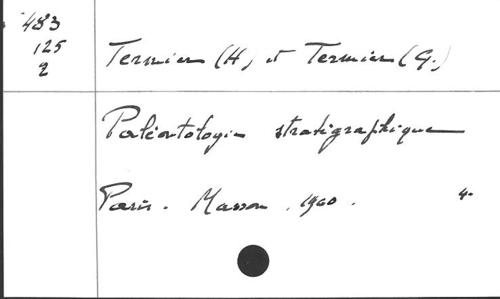 483
125
2
Termier (H) et Termier (G.)
Paléontologie stratigraphique
Paris. Masson. 1960. 4°